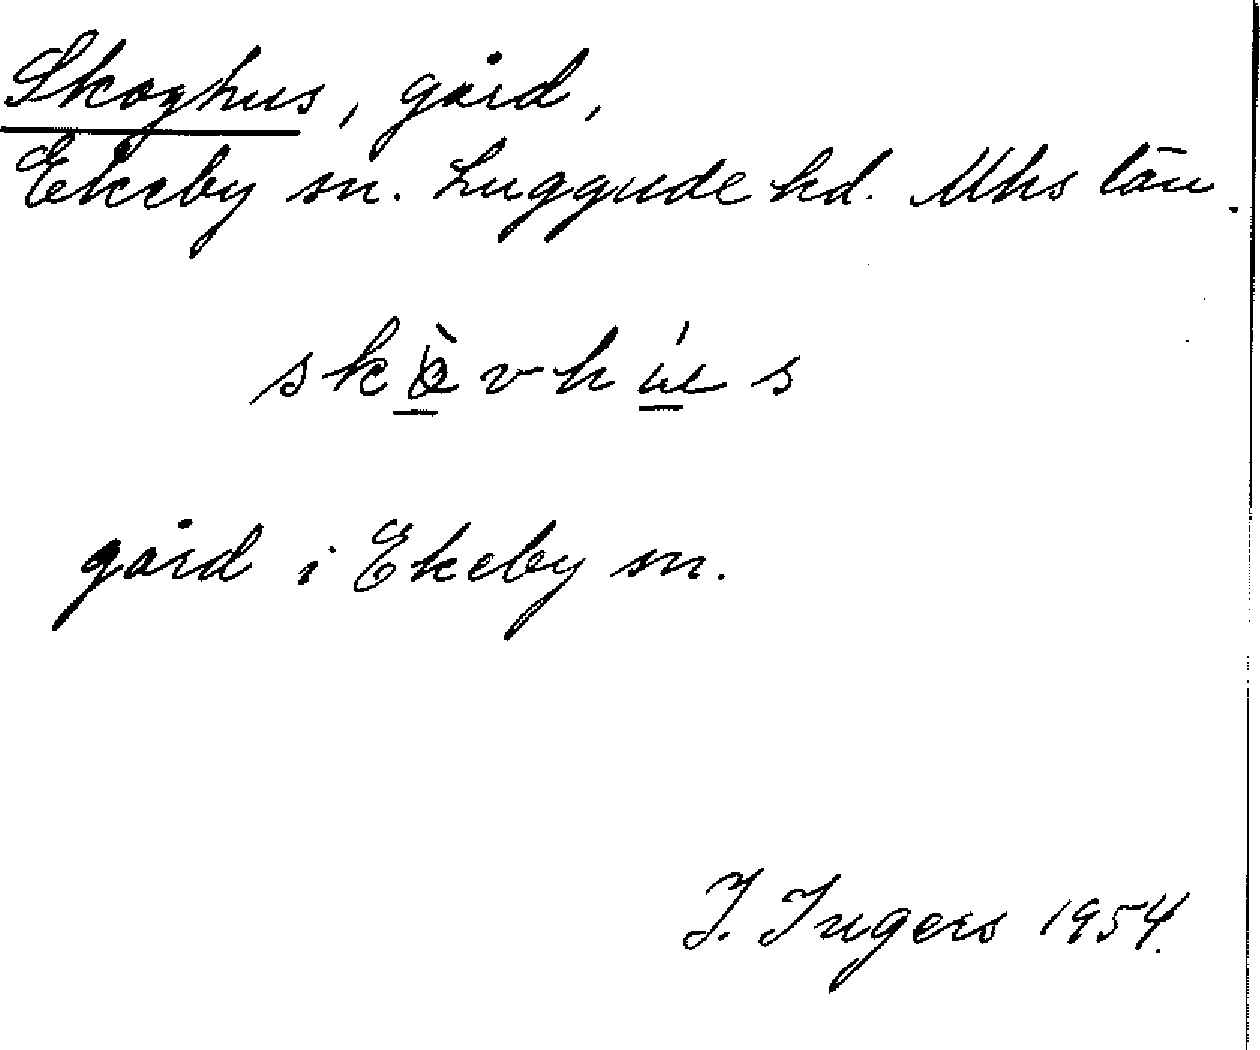 Skoghus, gård,
Ekeby sn. Luggude hd. Mhs län.
skò̠vhú̠s
gård i Ekeby sn.
I. Ingers 1954.